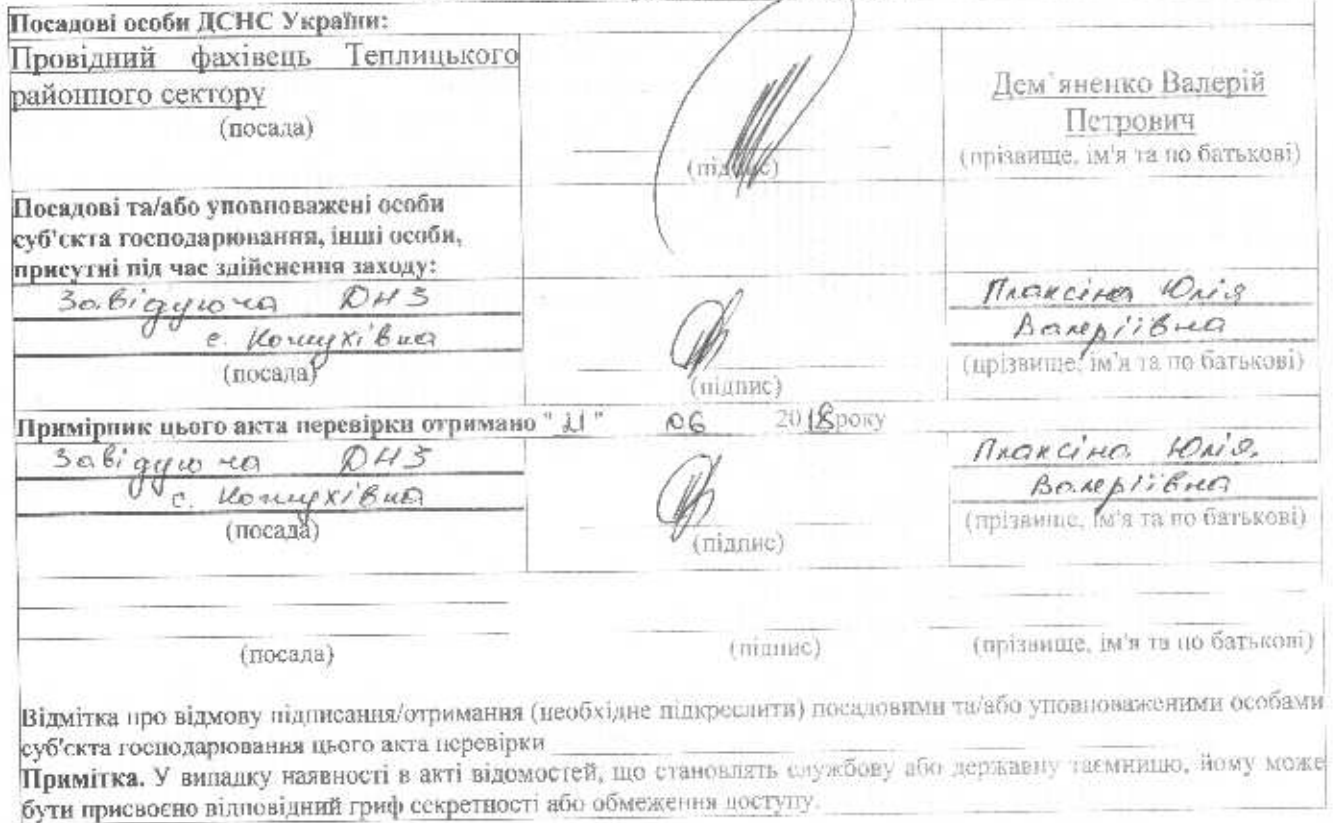 Посадові особи ДСНС України:
Провідний фахівець Теплицького
районного сектору
(посада)
(підпис)
Дем`яненко Валерій
Петрович
(прізвище, ім'я та по батькові)
Посадові та/або уповноважені особи
суб'єкта господарювання, інші особи,
присутні під час здійснення заходу:
Завідуюча ДНЗ
с. Кожухівка
(посада)
(підпис)
Плаксіна Юлія
Валеріївна
(прізвище, ім'я та по батькові)
Примірник цього акта перевірки отримано " 11 " 06 2018 року
Завідуюча ДНЗ
с. Кожухівка
(посада)
(підпис)
Плаксіна Юлія
Валеріївна
(прізвище, ім'я та по батькові)
(посада)
(підпис)
(прізвище, ім'я та по батькові)
Відмітка про відмову підписання/отримання (необхідне підкреслити) посадовими та/або уповноваженими особами
суб'єкта господарювання цього акта перевірки
Примітка. У випадку наявності в акті відомостей, що становлять службову або державну таємницю, йому може
бути присвоєно відповідний гриф секретності або обмеження доступу.